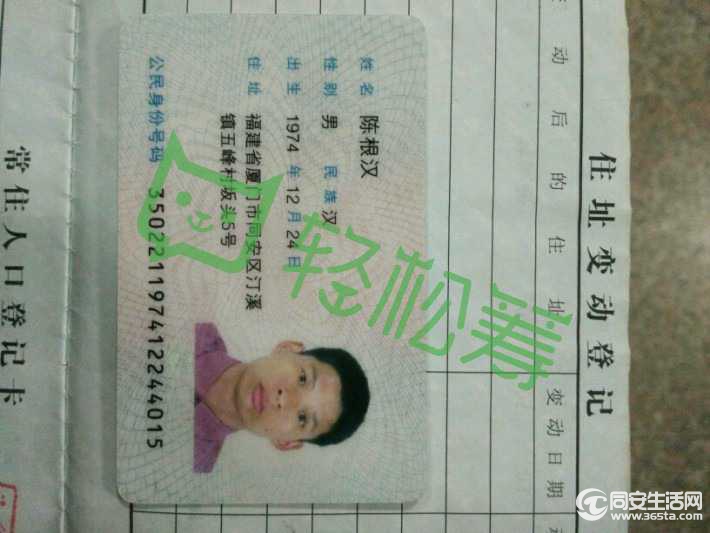 姓名 陈根汉
性别 男 民族 汉
出生 1974年12月24日
住址 福建省厦门市同安区汀溪
镇五峰村坂头5号
公民身份号码 350221197412244015
轻松筹
住址变动登记
变动后的住址
变动日期
常住人口登记卡
同安生活网
www.365ta.com